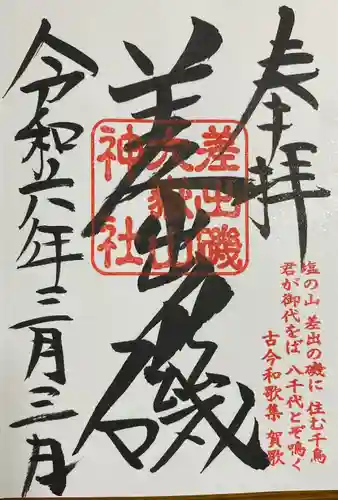 奉拝
塩の山 差出の磯に 住む千鳥
君が御代をば 八千代とぞ鳴く
古今和歌集 賀歌
差出磯
差出磯
大嶽山
神社
令和六年三月三日